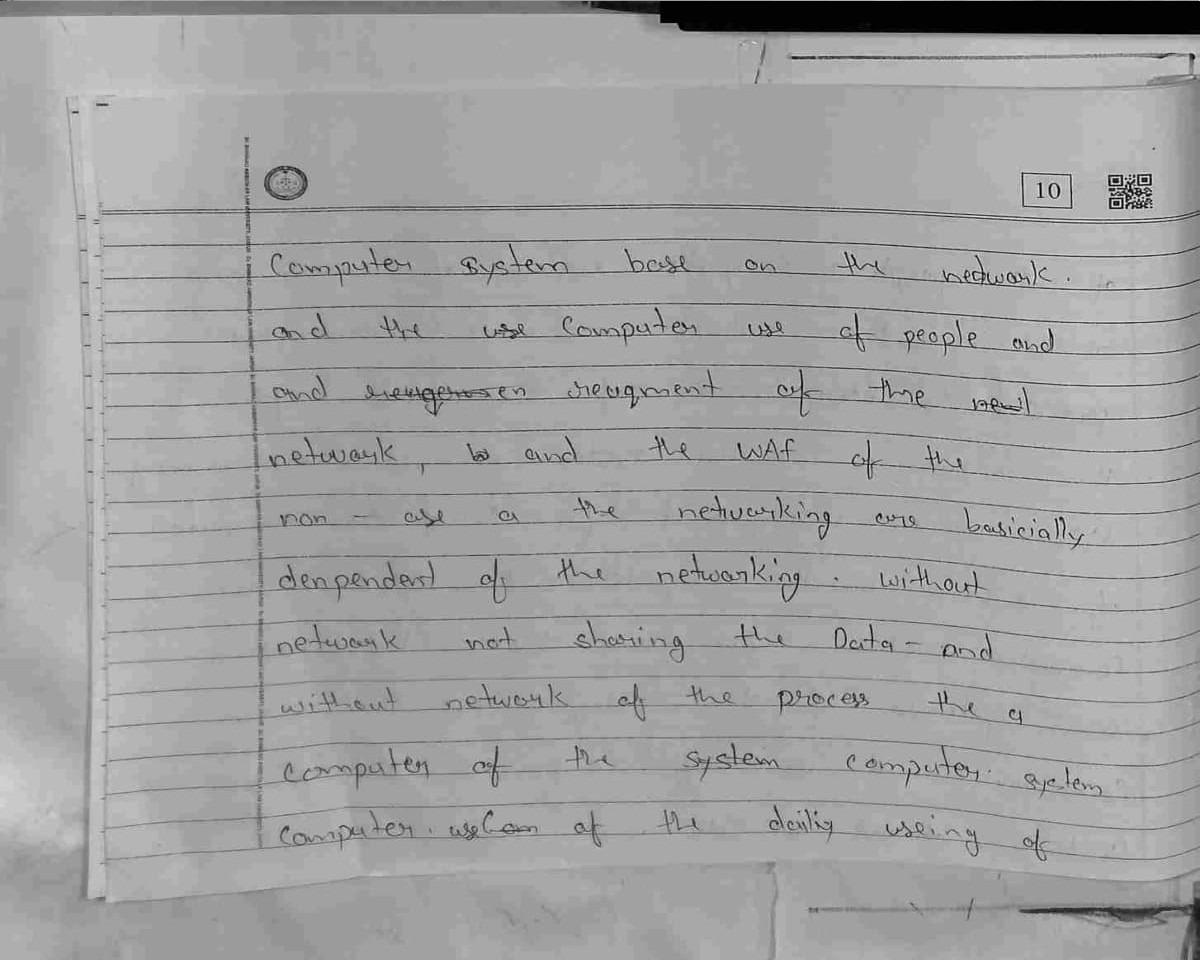 10
Computer system base on the nedwark.
and the use Computer use of people and
and reuqment of the
network, and the WAf of the
non - ase a the networking are basicially
denpendent of the networking. without
network not sharing the Data - and
without network of the process the a
computer of the system computer. system
computer. use of the dailiy useing of